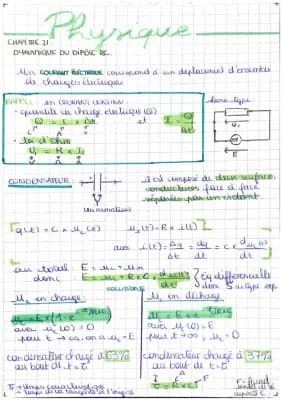 Physique
CHAPITRE 21
DYNAMIQUE DU DIPÔLE RC
Un COURANT ÉLECTRIQUE correspond à un déplacement d'ensemble
de charges électriques
RAPPEL en COURANT CONTINU
• quantité de charge électrique (Q)
Q = I × Δt et I = Q/Δt
• Loi d'Ohm
U = R × I
CONDENSATEUR :
il est composé de deux surfaces
conductrices face à face
séparées par un isolant
les armatures
q(t) = C × u_c(t) u_R(t) = R × i(t)
avec i(t) = Δq/Δt = dq/dt = C × du_c(t)/dt
au total E = u_c + u_R
donc E = u_c + R × C × du_c(t)/dt
Éq différentielle
u_c en charge
avec u_c(0) = 0
pour t → ∞, on a u_c = E
condensateur chargé à 63%
au bout de t = τ
u_c en décharge
avec u_c(0) = E
pour t → ∞, u_c = 0
condensateur chargé à 37%
au bout de t = τ
τ = R × C